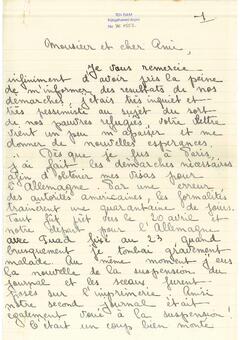 1
Monsieur et cher Ami,
Je vous remercie
infiniment d'avoir pris la peine
de m'informer des resultats de nos
démarches, j'étais très inquiet et
très pessimiste au sujet du sort
de nos pauvres réfugiés, votre lettre
vient un peu m'apaiser et me
donner de nouvelles espérances
Dès que je fus à Paris,
j'ai fait les démarches nécessaires
afin d'obtenir mes visas pour
l'Allemagne Par une erreur
des autorités américaines, les formalités
trainèrent une quarantaine de jours.
Tout fût prêt vers le 20 avril et
notre départ pour l'Allemagne
avec fixé au 23 Quand
brusquement je tombai gravement
malade. Au même moment j'eus
la nouvelle de la suspension du
journal et les sceaux furent
posés sur l'imprimerie. Ainsi
notre second journal était
également voué à la suspension!
C'était un coup bien monté